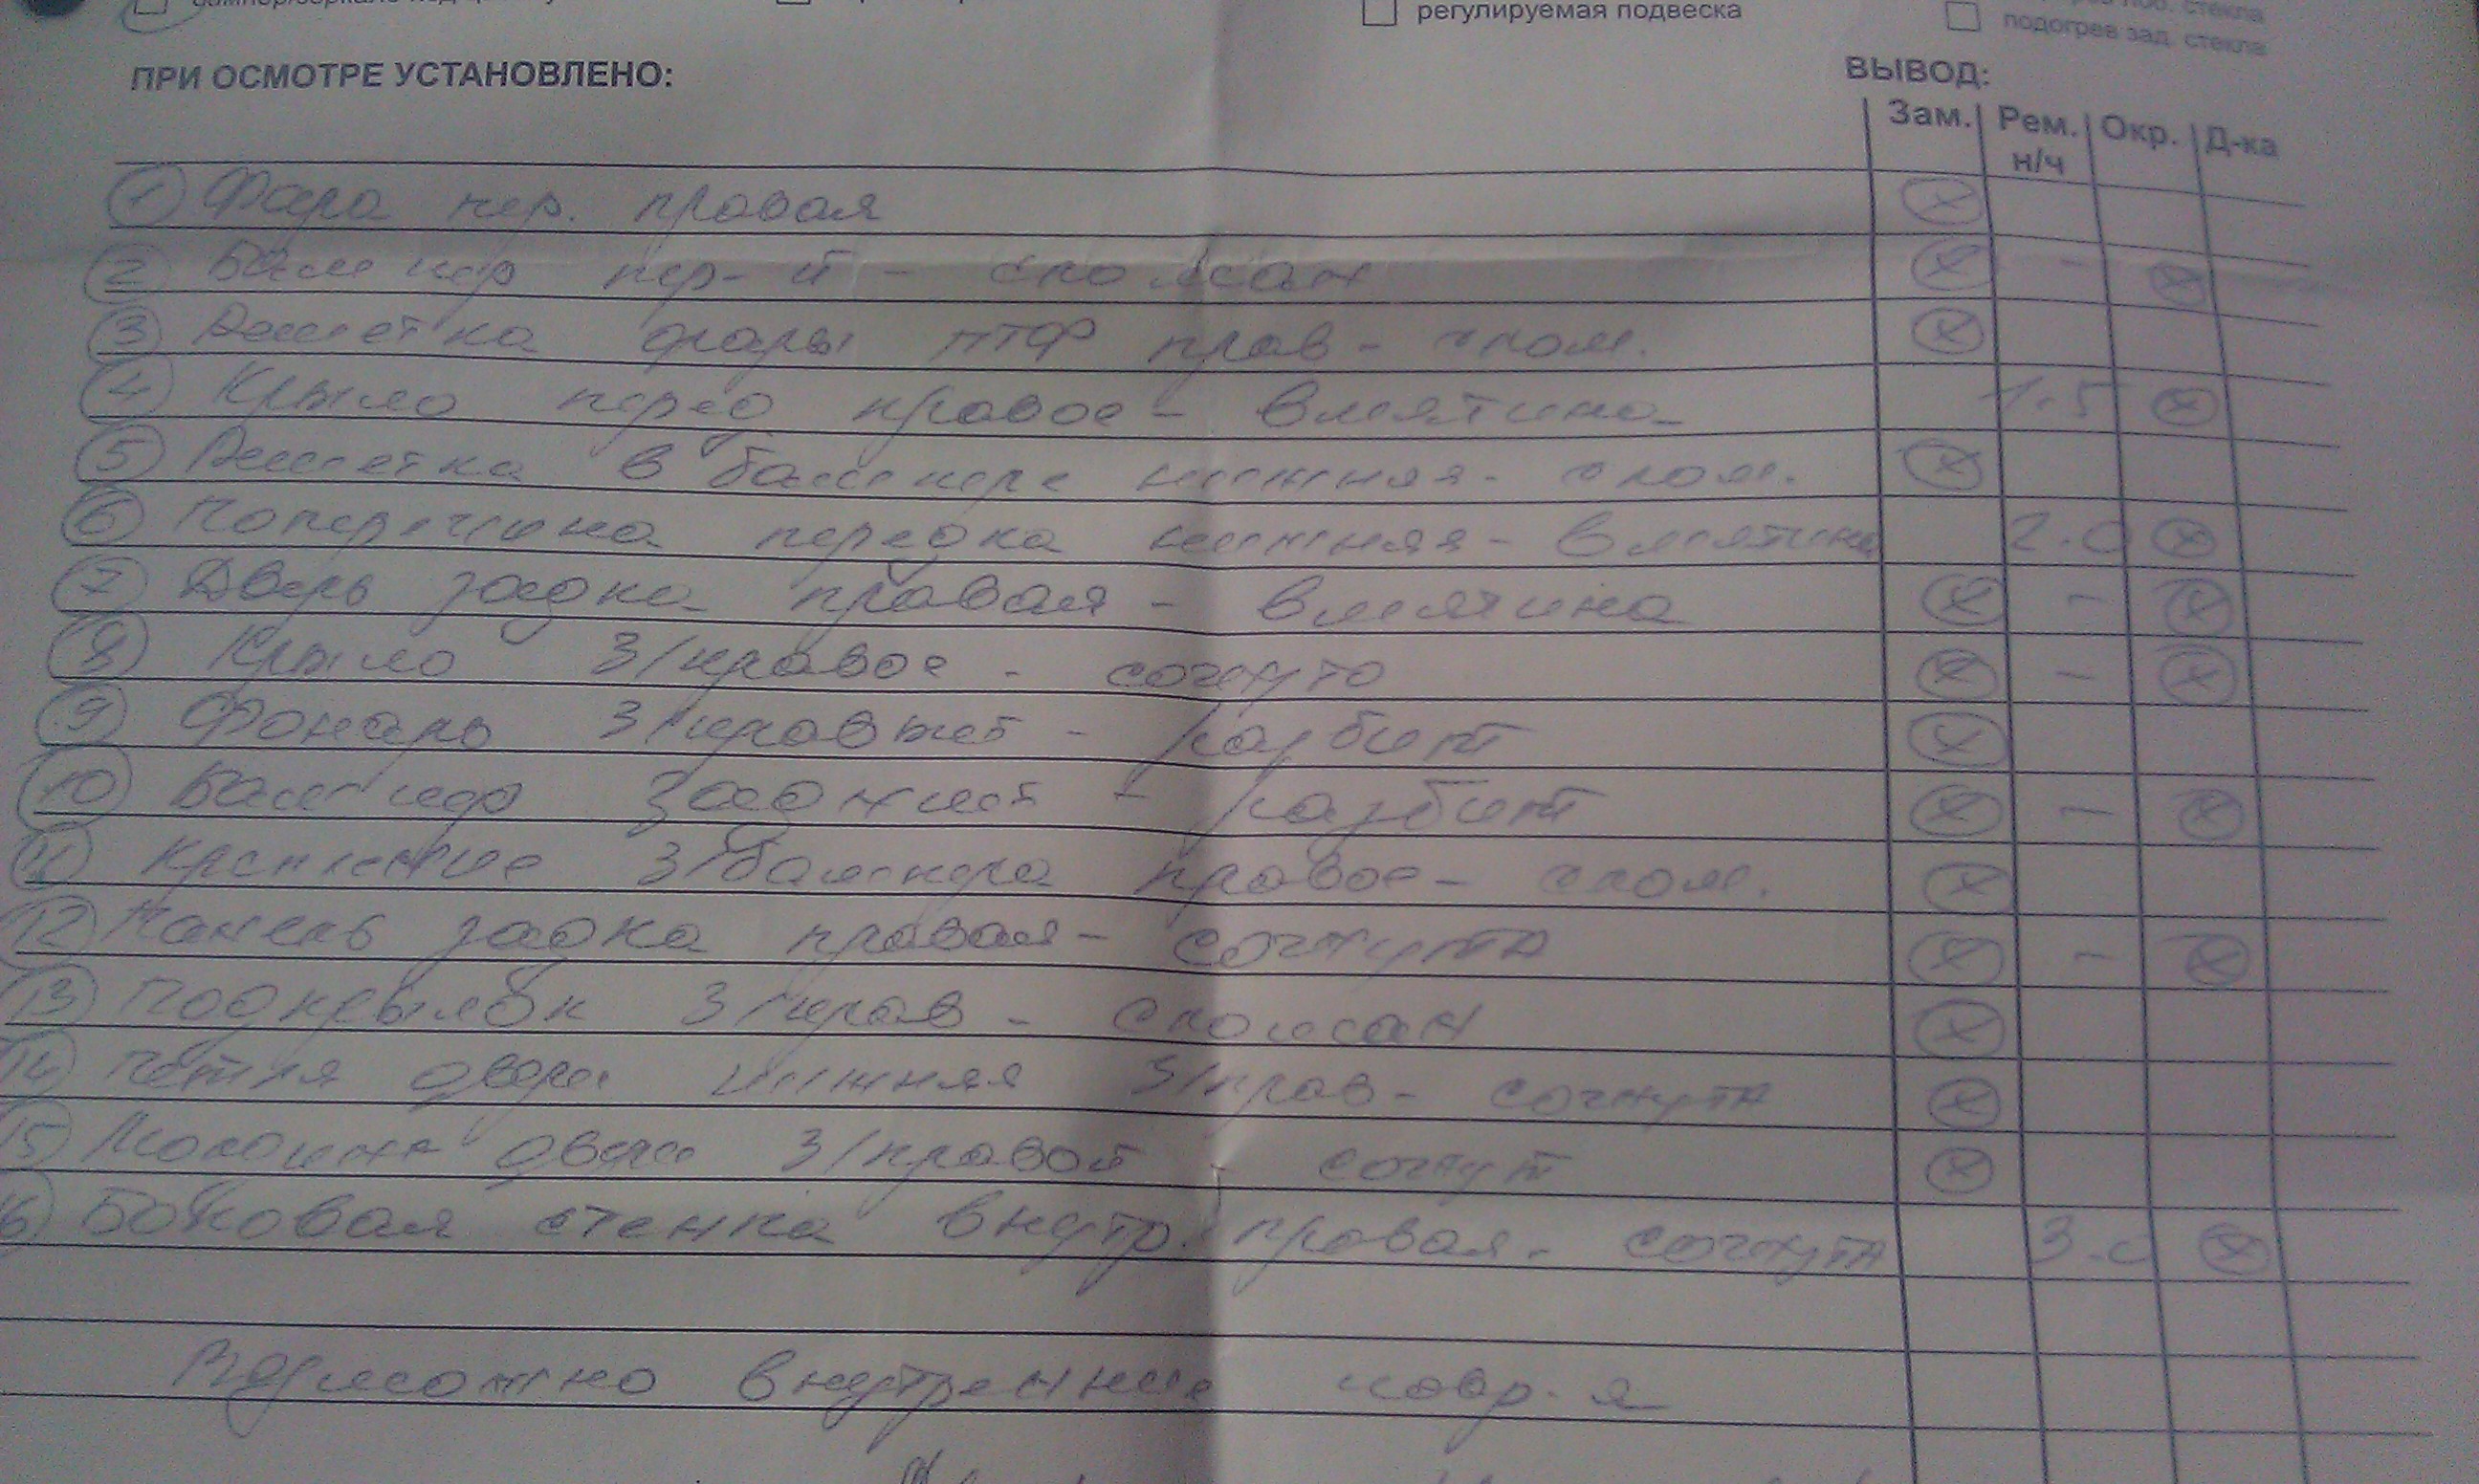 регулируемая подвеска
стекла
подогрев зад. стекла
ПРИ ОСМОТРЕ УСТАНОВЛЕНО:
ВЫВОД:
Зам. Рем. н/ч Окр. Д-ка
1 Фара пер. правая X
2 Бампер пер-й - сломан X - X
3 Решетка фары ПТФ прав - слом. X
4 Крыло перед правое - вмятина 1.5 X
5 Решетка в бампере нижняя - слом. X
6 Поперечина передка нижняя - вмятина 2.0 X
7 Дверь задка правая - вмятина X - X
8 Крыло З/правое - согнуто X - X
9 Фонарь З/правый - разбит X
10 Бампер задний - разбит X - X
11 Крепление З/бампера правое - слом. X
12 Панель задка правая - согнута X - X
13 Подкрылок З/прав - сломан X
14 Петля двери нижняя З/прав - согнута X
15 двери З/правой - согнут X
16 Боковая стенка внутр. правая - согнута 3.0 X
Возможно внутренние повр-я